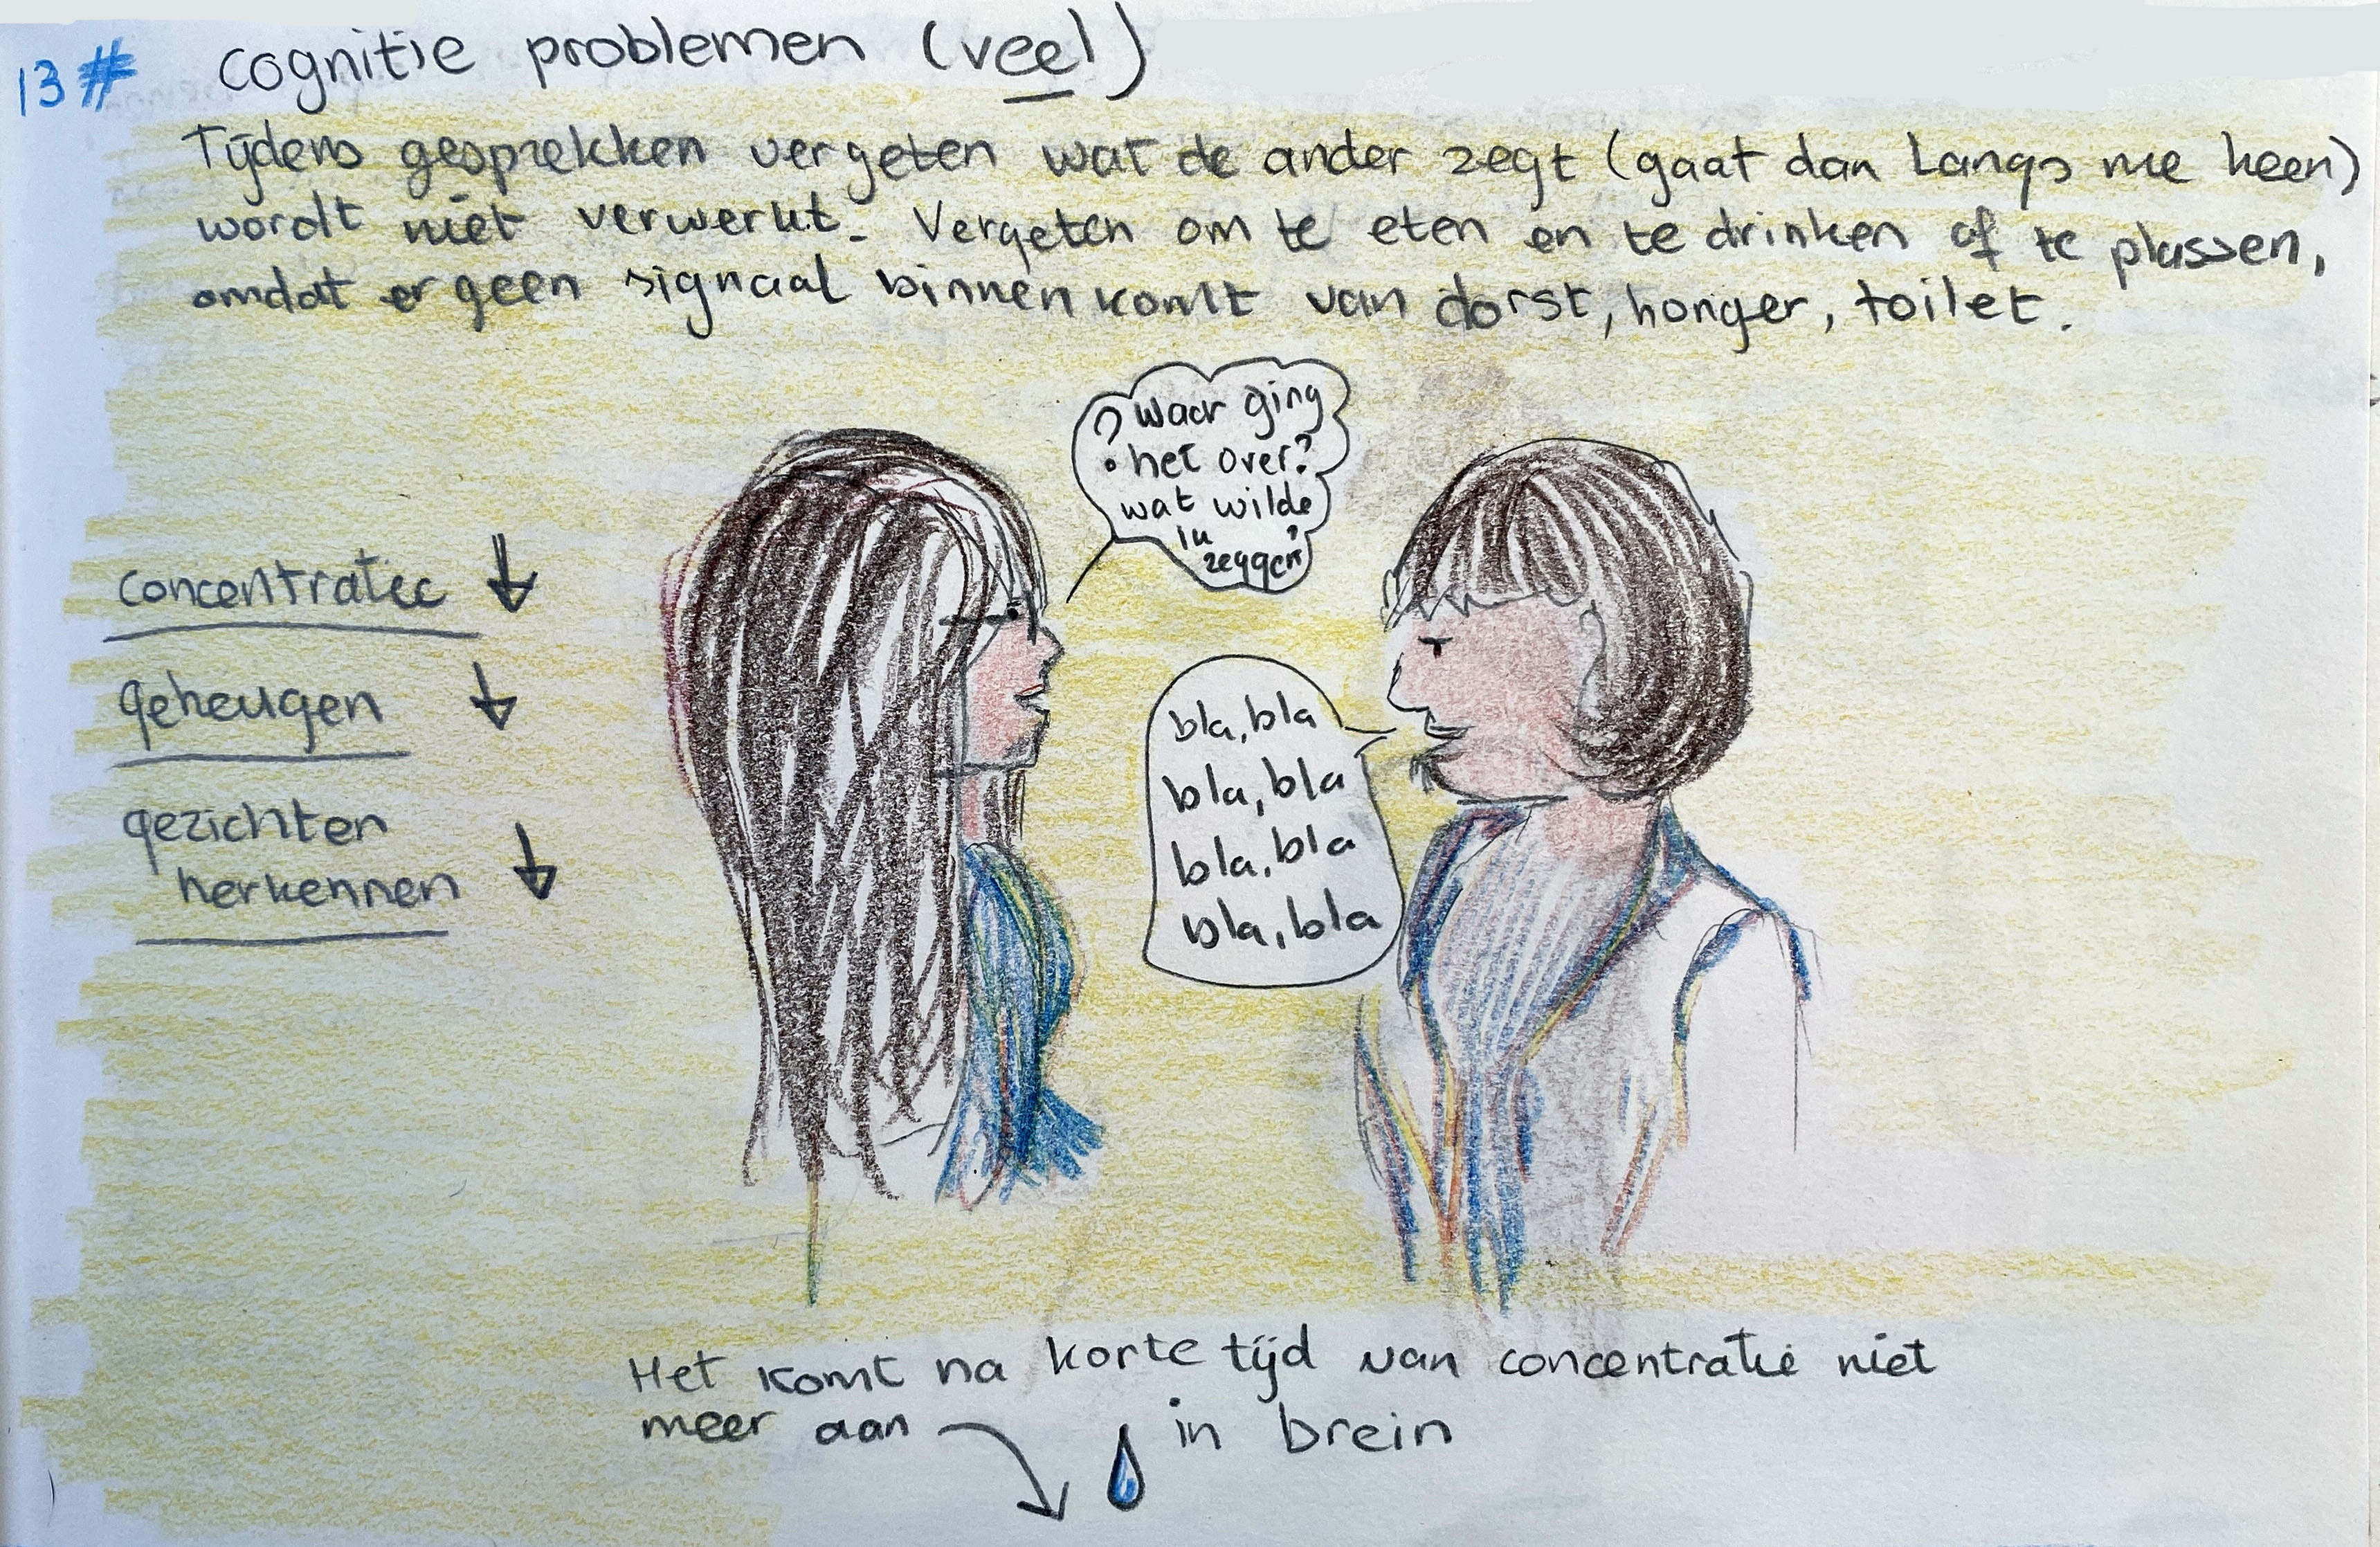 13# cognitie problemen (veel)
Tijdens gesprekken vergeten wat de ander zegt (gaat dan langs me heen)
wordt niet verwerkt. Vergeten om te eten en te drinken of te plassen,
omdat er geen signaal binnen komt van dorst, honger, toilet.
? waar ging
het over?
wat wilde
ik
zeggen?
concentratie ↓
geheugen ↓
gezichten
herkennen ↓
bla, bla
bla, bla
bla, bla
bla, bla
Het komt na korte tijd van concentratie niet
meer aan in brein